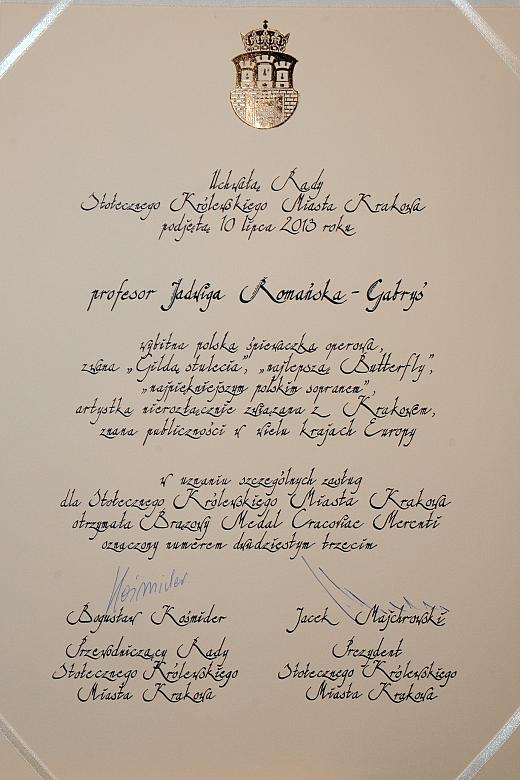 Uchwałą Rady
Stołecznego Królewskiego Miasta Krakowa
podjętą 10 lipca 2013 roku
profesor Jadwiga Romańska-Gabryś
wybitna polska śpiewaczka operowa,
zwana „Gildą stulecia”, „najlepszą Butterfly”,
„najpiękniejszym polskim sopranem”,
artystka nierozłącznie związana z Krakowem,
znana publiczności w wielu krajach Europy
w uznaniu szczególnych zasług
dla Stołecznego Królewskiego Miasta Krakowa
otrzymała Brązowy Medal Cracoviae Merenti
oznaczony numerem dwudziestym trzecim
Kośmider
Bogusław Kośmider
Przewodniczący Rady
Stołecznego Królewskiego
Miasta Krakowa
Jacek Majchrowski
Prezydent
Stołecznego Królewskiego
Miasta Krakowa